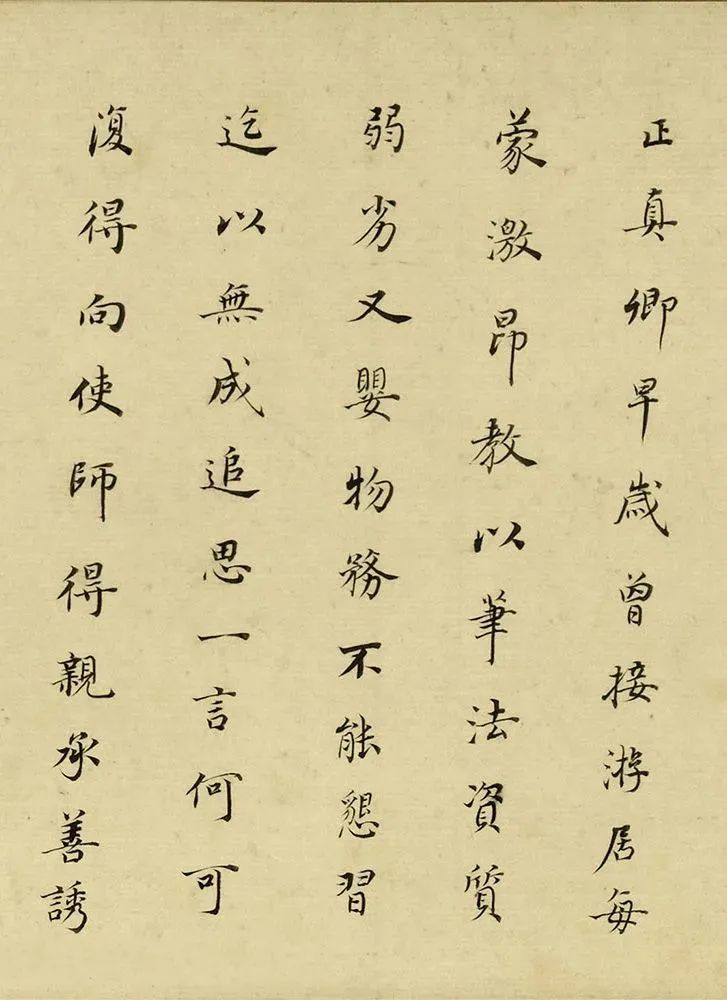 正真卿早歲曾接游居每
蒙激昂教以筆法資質
弱劣又嬰物務不能懇習
迄以無成追思一言何可
復得向使師得親承善誘